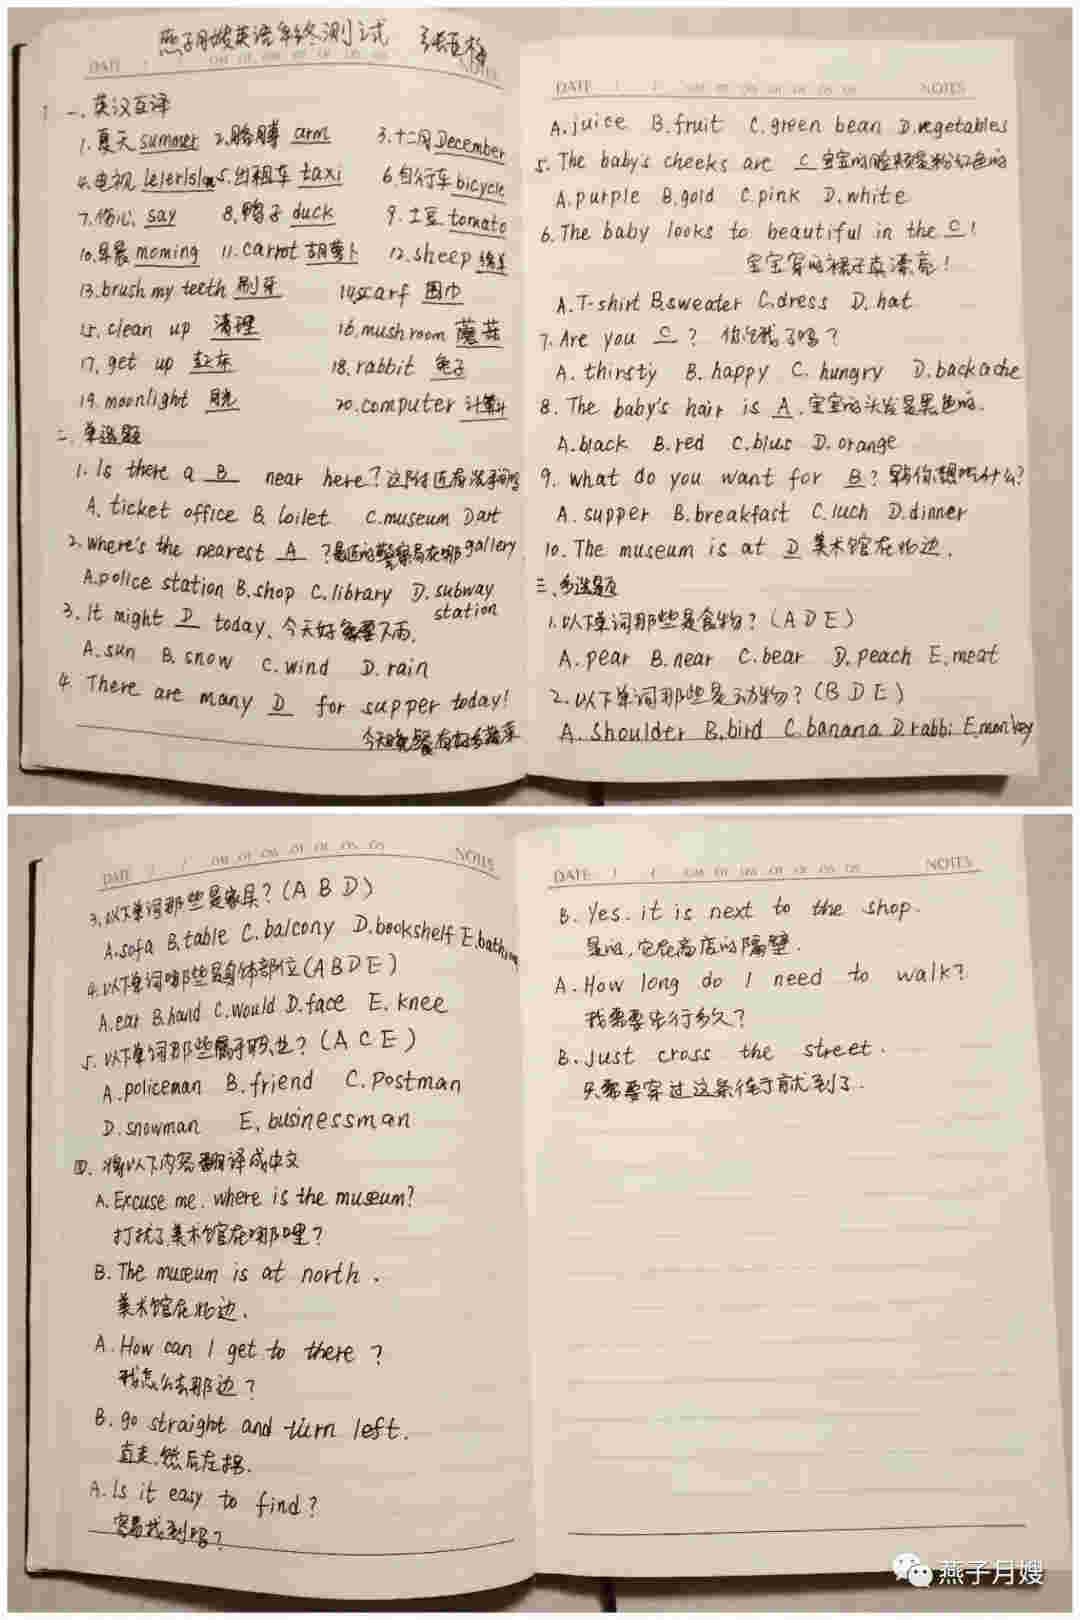 燕子月嫂英语年终测试
DATE
NOTES
一、英汉互译
1.夏天 summer 2.胳膊 arm 3.十二月 December
4.电视 5.出租车 taxi 6.自行车 bicycle
7.伤心 say 8.鸭子 duck 9.土豆 tomato
10.早晨 morning 11.carrot 胡萝卜 12.sheep 绵羊
13.brush my teeth 刷牙 14.scarf 围巾
15.clean up 清理 16.mushroom 蘑菇
17.get up 起床 18.rabbit 兔子
19.moonlight 月光 20.computer 计算机
二、单选题
1.Is there a B near here?这附近有洗手间吗
A.ticket office B.toilet C.museum D.art
gallery
2.Where's the nearest A ?最近的警察局在哪
A.police station B.shop C.library D.subway
station
3.It might D today.今天好像要下雨.
A.sun B.snow C.wind D.rain
4.There are many D for supper today!
今天晚餐有好多蔬菜
DATE
NOTES
A.juice B.fruit C.green bean D.vegetables
5.The baby's cheeks are C 宝宝的脸颊是粉红色的
A.purple B.gold C.pink D.white
6.The baby looks to beautiful in the C!
宝宝穿的裙子真漂亮!
A.T-shirt B.sweater C.dress D.hat
7.Are you C? 你饿了吗?
A.thirsty B.happy C.hungry D.backache
8.The baby's hair is A.宝宝的头发是黑色的.
A.black B.red C.blus D.orange
9.what do you want for B?早餐你想吃什么?
A.supper B.breakfast C.luch D.dinner
10.The museum is at D 美术馆在北边.
三、多选题
1.以下单词那些是食物?(A D E)
A.pear B.near C.bear D.peach E.meat
2.以下单词那些是动物?(B D E)
A.shoulder B.bird C.banana D.rabbi E.monkey
DATE
NOTES
3.以下单词那些是家具?(A B D)
A.sofa B.table C.balcony D.bookshelf
4.以下单词哪些是身体部位(A B D E)
A.ear B.hand C.would D.face E.knee
5.以下单词那些属于职业?(A C E)
A.policeman B.friend C.Postman
D.snowman E.businessman
四、将以下内容翻译成中文
A.Excuse me.where is the museum?
打扰了,美术馆在哪里?
B.The museum is at north.
美术馆在北边.
A.How can I get to there?
我怎么去那边?
B.go straight and turn left.
直走,然后左拐.
A.Is it easy to find?
容易找到吗?
DATE
NOTES
B.Yes.it is next to the shop.
是的,它在商店的隔壁.
A.How long do I need to walk?
我需要步行多久?
B.just cross the street.
只需要穿过这条街就到了.
燕子月嫂